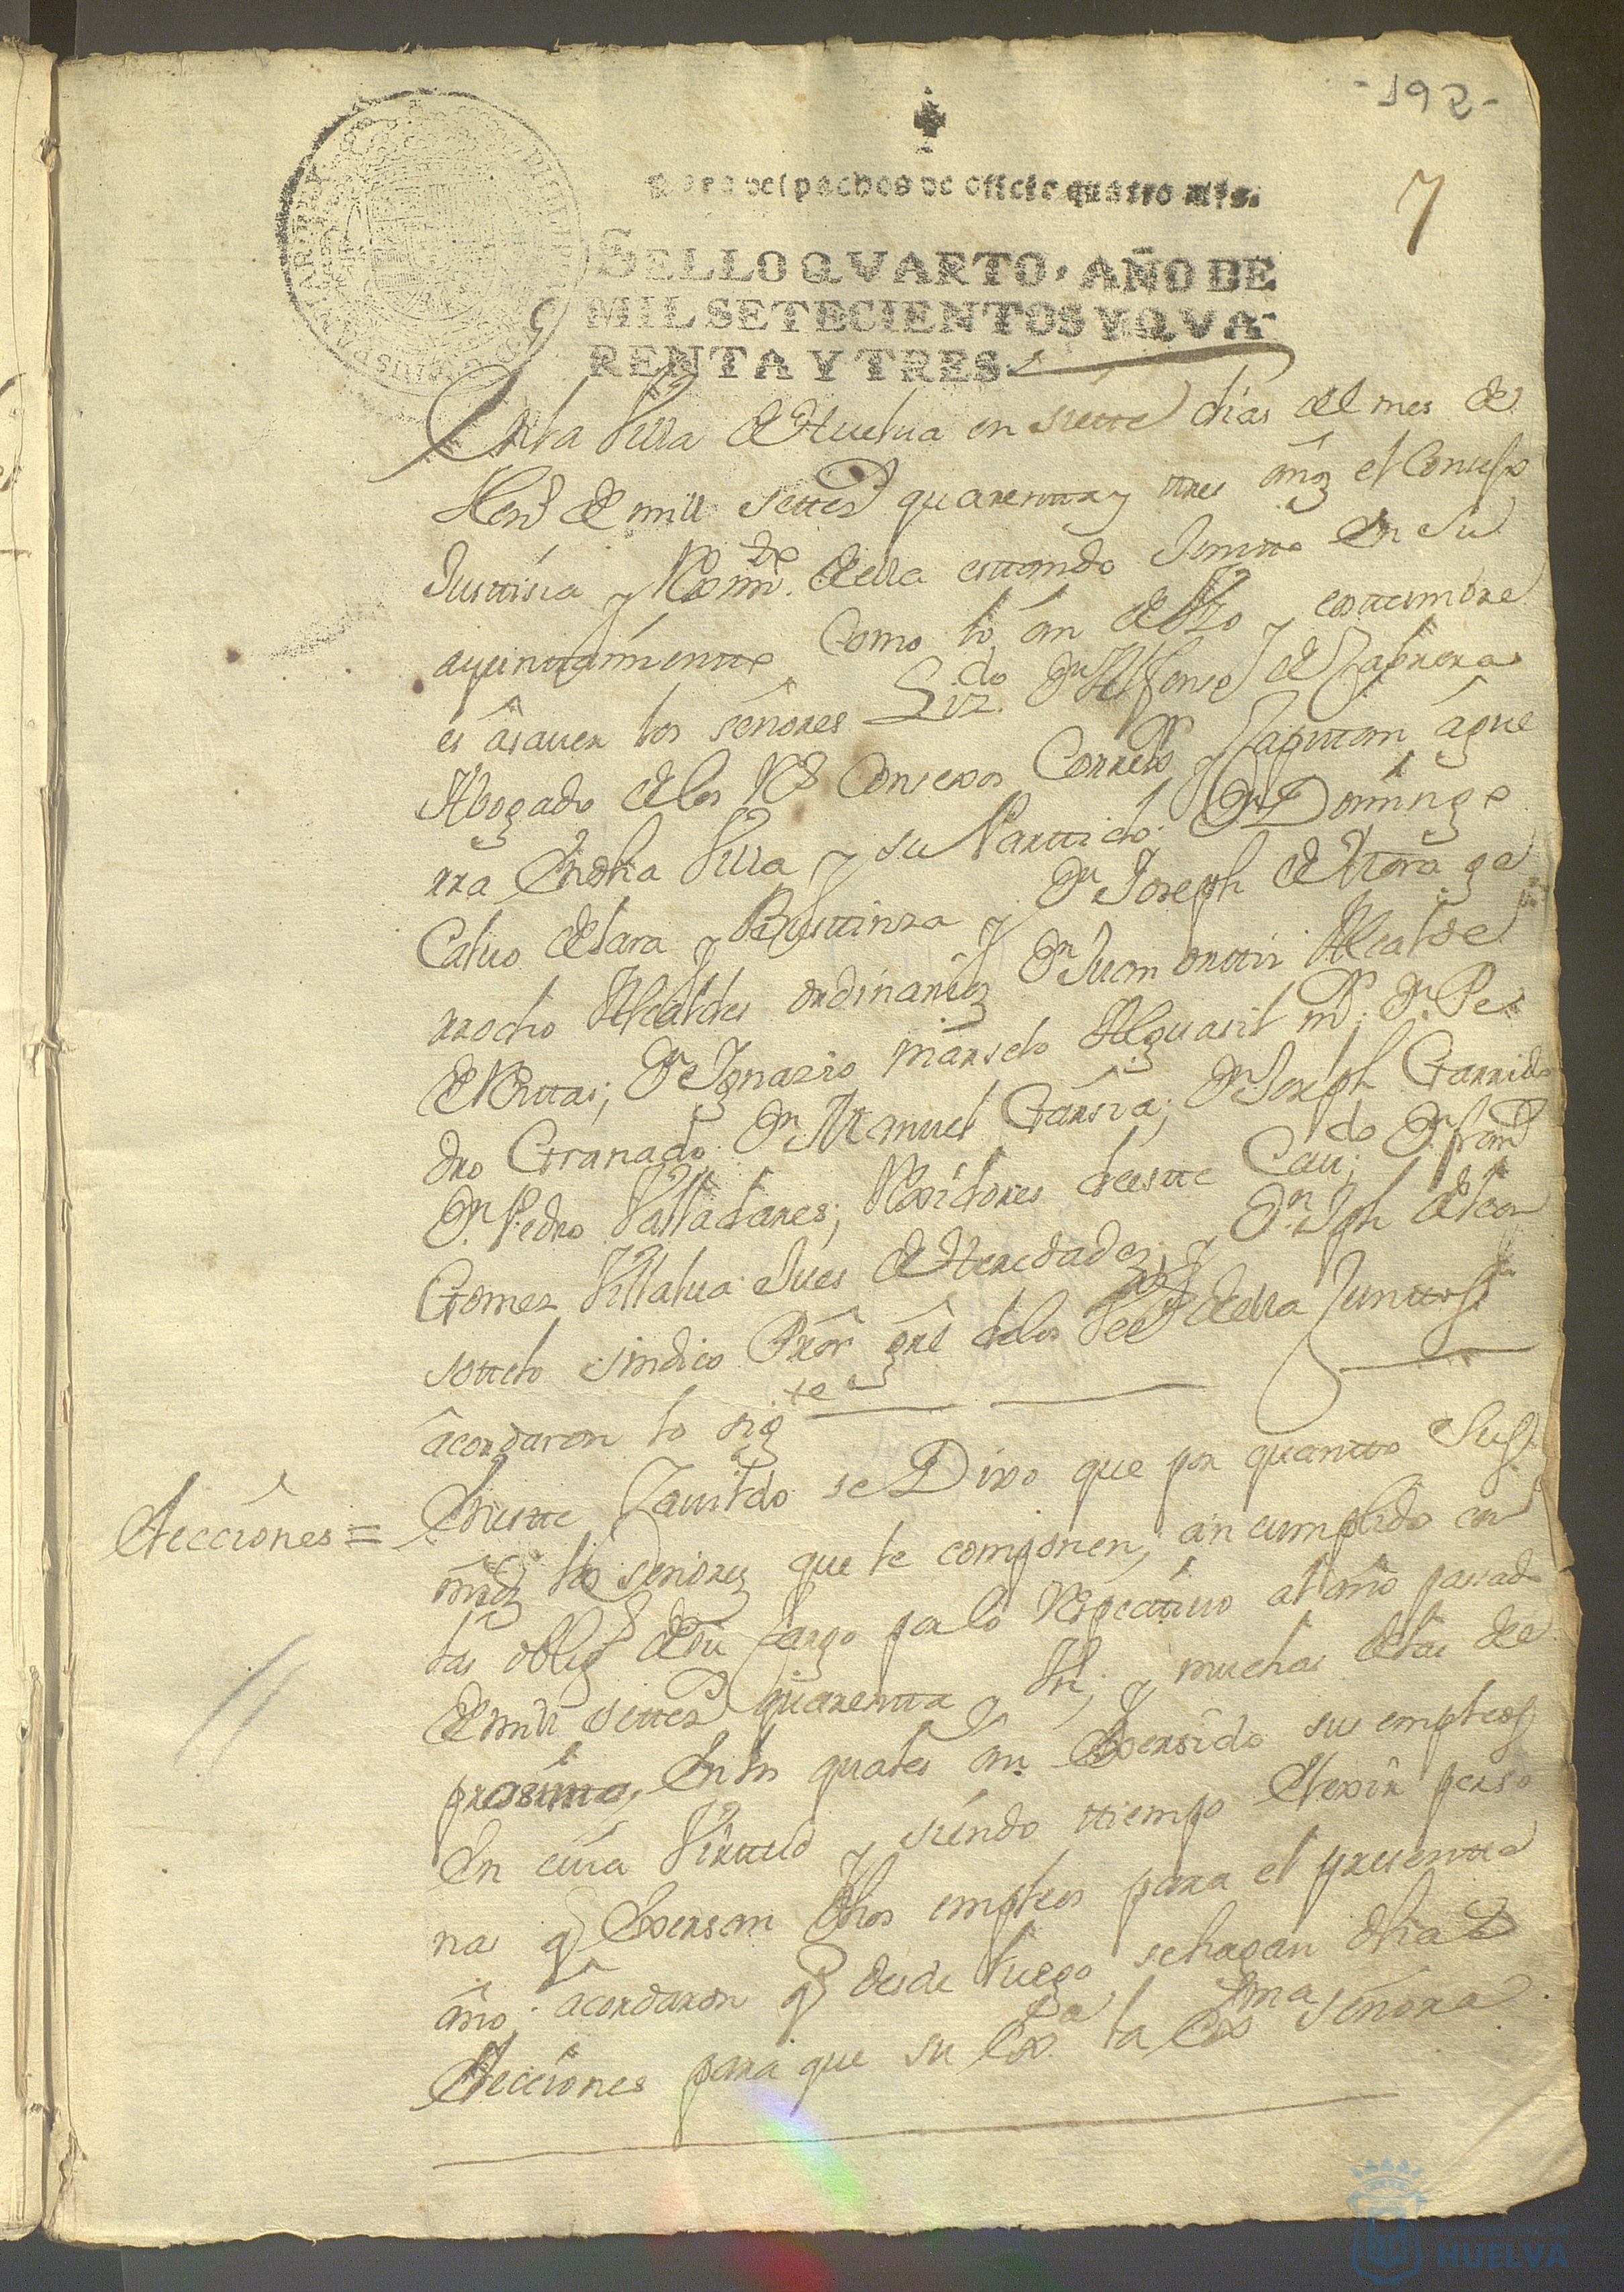 -192-
7
Para despachos de oficio quatro mrs.
SELLO QVARTO, AÑO DE
MIL SETECIENTOS Y QVA-
RENTA Y TRES.
En la Villa de Huelua en siette dias del mes de
Henº de mill settesº quarentta y tres años el Conséxo
Justtisia y Reximto. de ella esttando Juntto en su
ayunttamientto como lo an de Uzo y costtumbre
es âsauer los señores Lizdo. Dn Alfonso de Zabrera
Abogado de los Rs Consexos Correxr y Zapitan âgue
rra En dha Villa y su Parttido; Dn Domingo
Caluo de lara y Busttinza y Dn Joseph de Mora ga
rrocho Alcaldes ordinarios Dn Juan Orttiz Alcalde
de Rittas; Dn Ignazio Marselo Alguasil mr; Dn Pe
dro Granado Dn Manuel Garsia; Dn Joseph Garrido
Dn Pedro Valladares; Rexidores de estte Cauido Dn Franco
Gomez Villalua Jues de Heredades; y Dn Jph de leon
sottelo sindico Prór grâl de los Veºs de ella Junttos
âcordaron lo sigte
Elecciónes = En estte Zauildo se Dixo que por quantto Sus
mrds los señores que le componen, an cumplido con
las obligs de su Zargo por lo Respecttiuo al año pasado
de mill settesº quarentta y dos; y muchos dias de este
proximo, En los quales an Exersido sus empleos
En cuia Virttud y siendo ttiempo Elexir perso
nas q Exersan dhos empleos para el presentte
año; âcordaron q desde luego se hagan dhas
Elecciones para que su Exa. la Exma señora
HUELVA